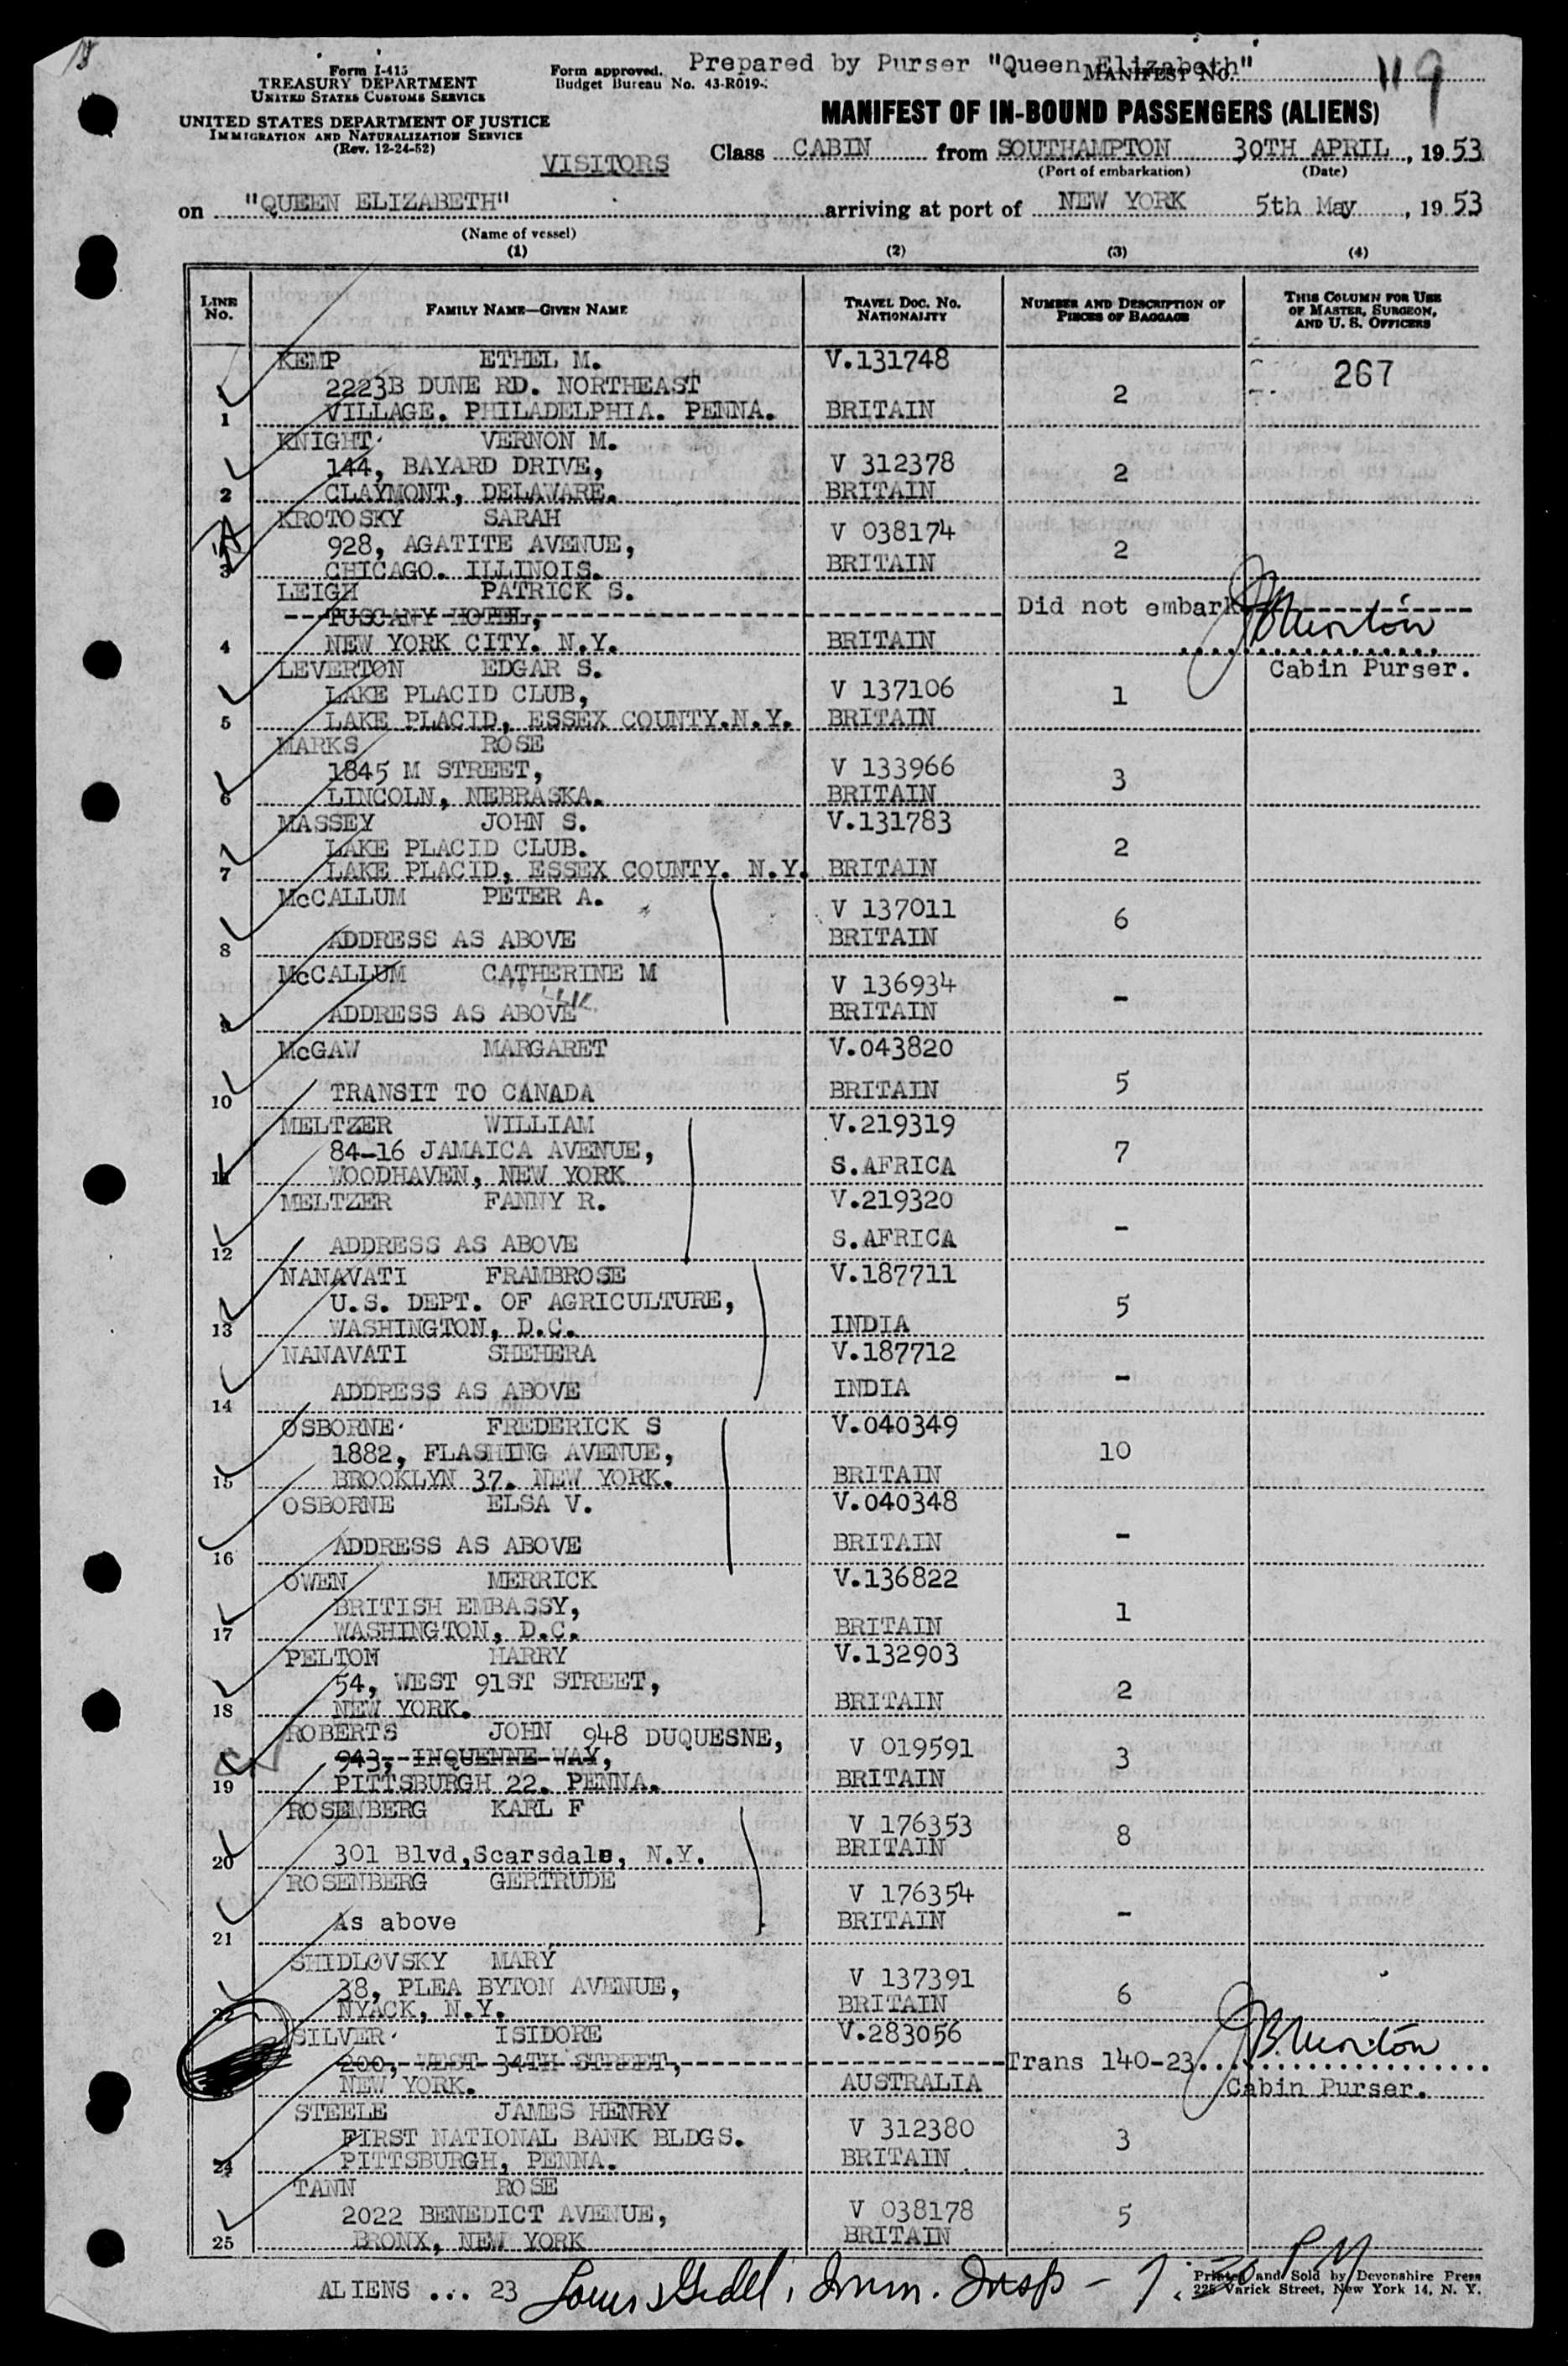 Prepared by Purser "Queen Elizabeth"
Form I-415
TREASURY DEPARTMENT
UNITED STATES CUSTOMS SERVICE
Form approved.
Budget Bureau No. 43-R019-
MANIFEST No. 119
UNITED STATES DEPARTMENT OF JUSTICE
IMMIGRATION AND NATURALIZATION SERVICE
(Rev. 12-24-52)
MANIFEST OF IN-BOUND PASSENGERS (ALIENS)
VISITORS
Class CABIN from SOUTHAMPTON 30TH APRIL, 1953
(Port of embarkation) (Date)
on "QUEEN ELIZABETH" arriving at port of NEW YORK 5th May, 1953
(Name of vessel)
(1) (2) (3) (4)
LINE No. FAMILY NAME—GIVEN NAME TRAVEL DOC. NO. NATIONALITY NUMBER AND DESCRIPTION OF PIECES OF BAGGAGE THIS COLUMN FOR USE OF MASTER, SURGEON, AND U. S. OFFICERS
KEMP ETHEL M. V.131748 267
2223B DUNE RD. NORTHEAST 2
1 VILLAGE. PHILADELPHIA. PENNA. BRITAIN
KNIGHT VERNON M.
144, BAYARD DRIVE, V 312378 2
2 CLAYMONT, DELAWARE. BRITAIN
KROTOSKY SARAH
928, AGATITE AVENUE, V 038174 2
3 CHICAGO. ILLINOIS. BRITAIN
LEIGH PATRICK S.
TUSCANY HOTEL, Did not embark
4 NEW YORK CITY. N.Y. BRITAIN
Cabin Purser.
LEVERTON EDGAR S.
LAKE PLACID CLUB, V 137106 1
5 LAKE PLACID, ESSEX COUNTY.N.Y. BRITAIN
MARKS ROSE
1845 M STREET, V 133966 3
6 LINCOLN, NEBRASKA. BRITAIN
MASSEY JOHN S. V.131783
LAKE PLACID CLUB. 2
7 LAKE PLACID, ESSEX COUNTY. N.Y. BRITAIN
McCALLUM PETER A. V 137011 6
8 ADDRESS AS ABOVE BRITAIN
McCALLUM CATHERINE M V 136934 -
9 ADDRESS AS ABOVE BRITAIN
McGAW MARGARET V.043820
10 TRANSIT TO CANADA BRITAIN 5
MELTZER WILLIAM V.219319
84-16 JAMAICA AVENUE, 7
11 WOODHAVEN, NEW YORK S.AFRICA
MELTZER FANNY R. V.219320 -
12 ADDRESS AS ABOVE S.AFRICA
NANAVATI FRAMBROSE V.187711
U.S. DEPT. OF AGRICULTURE, 5
13 WASHINGTON, D.C. INDIA
NANAVATI SHEHERA V.187712 -
14 ADDRESS AS ABOVE INDIA
OSBORNE FREDERICK S V.040349
1882, FLASHING AVENUE, 10
15 BROOKLYN 37. NEW YORK. BRITAIN
OSBORNE ELSA V. V.040348 -
16 ADDRESS AS ABOVE BRITAIN
OWEN MERRICK V.136822
BRITISH EMBASSY, 1
17 WASHINGTON, D.C. BRITAIN
PELTOM HARRY V.132903
54, WEST 91ST STREET, 2
18 NEW YORK. BRITAIN
ROBERTS JOHN 948 DUQUESNE,
943, INQUENNE WAY, V 019591 3
19 PITTSBURGH 22. PENNA. BRITAIN
ROSENBERG KARL F V 176353 8
20 301 Blvd,Scarsdale, N.Y. BRITAIN
ROSENBERG GERTRUDE V 176354 -
21 As above BRITAIN
SHIDLOVSKY MARY
38, PLEA BYTON AVENUE, V 137391 6
22 NYACK, N.Y. BRITAIN
SILVER ISIDORE V.283056
200, WEST 34TH STREET, Trans 140-23
NEW YORK. AUSTRALIA Cabin Purser.
STEELE JAMES HENRY
FIRST NATIONAL BANK BLDGS. V 312380 3
24 PITTSBURGH, PENNA. BRITAIN
TANN ROSE
2022 BENEDICT AVENUE, V 038178 5
25 BRONX, NEW YORK BRITAIN
ALIENS ... 23 Imm. Insp - 7:30 PM
Printed and Sold by Devonshire Press
225 Varick Street, New York 14, N. Y.